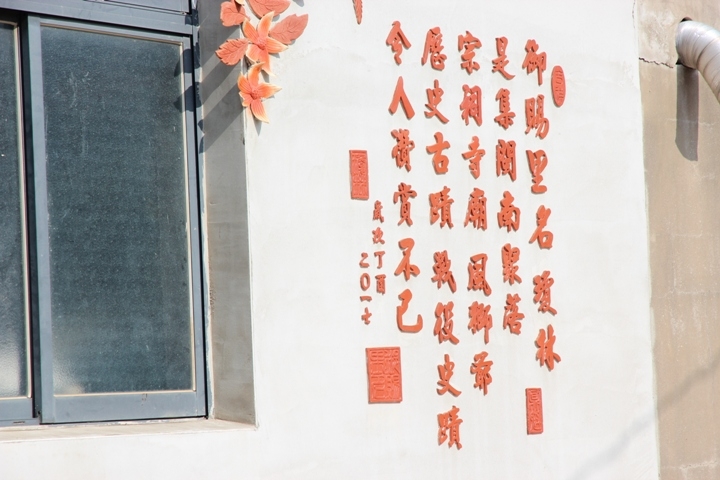 御賜里名瓊林
是集閩南聚落
宗祠寺廟風獅爺
歷史古蹟戰後史蹟
令人讚賞不已
歲次丁酉
二〇一七